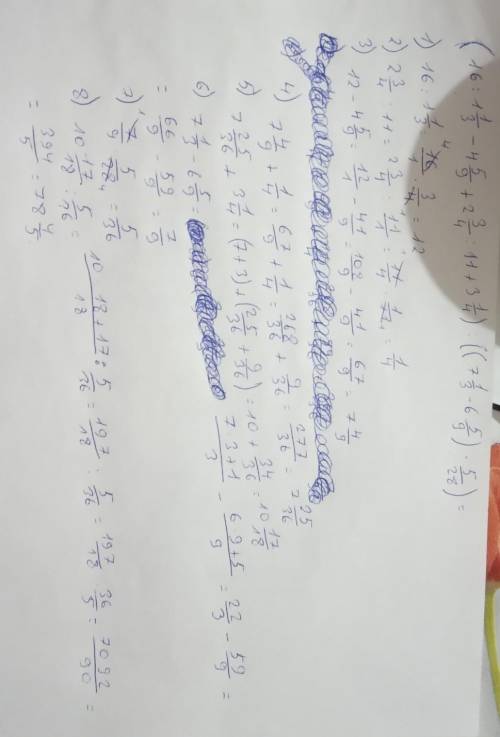 (16 : 1 1/3 - 4 5/9 + 2 3/4 : 11 + 3 1/4) : ((7 1/3 - 6 5/9) · 5/28) =
1) 16 : 1 1/3 = 16/1 · 3/4 = 12
2) 2 3/4 : 11 = 2 3/4 : 11/1 = 11/4 · 1/11 = 1/4
3) 12 - 4 5/9 = 12/1 - 41/9 = 108/9 - 41/9 = 67/9 = 7 4/9
4) 7 4/9 + 1/4 = 67/9 + 1/4 = 268/36 + 9/36 = 277/36 = 7 25/36
5) 7 25/36 + 3 1/4 = (7+3) + (25/36 + 9/36) = 10 + 34/36 = 10 17/18
6) 7 1/3 - 6 5/9 = 7·3+1/3 - 6·9+5/9 = 22/3 - 59/9 =
= 66/9 - 59/9 = 7/9
7) 7/9 · 5/28 = 5/36
8) 10 17/18 : 5/36 = 10·18+17/18 : 5/36 = 197/18 : 5/36 = 197/18 · 36/5 = 7092/90 =
= 394/5 = 78 4/5